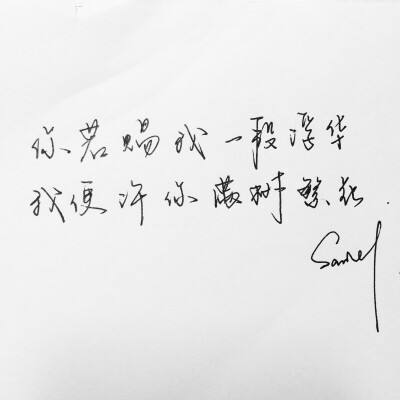 你若赐我一段浮华
我便许你满树繁花.
Samel